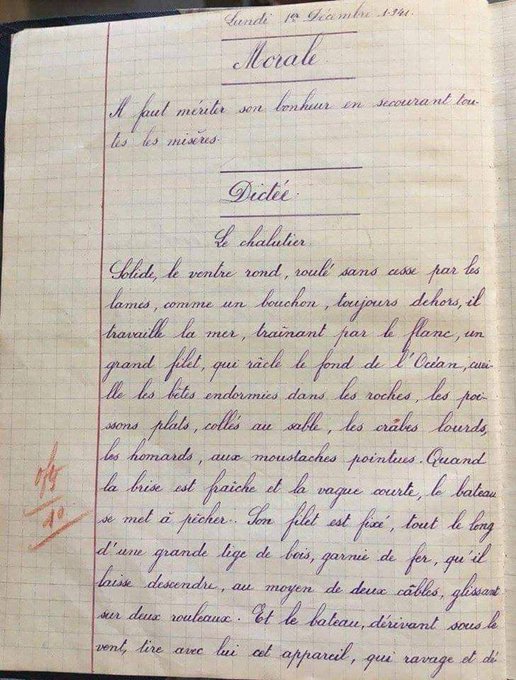 Lundi 1er Décembre 1941.
Morale
Il faut mériter son bonheur en secourant tou-
tes les misères.
Dictée
Le chalutier
Solide, le ventre rond, roulé sans cesse par les
lames, comme un bouchon, toujours dehors, il
travaille la mer, traînant par le flanc, un
grand filet, qui râcle le fond de l'Océan, cuei-
lle les bêtes endormies dans les roches, les poi-
ssons plats, collés au sable, les crâbes lourds,
les homards, aux moustaches pointues. Quand
la brise est fraîche et la vague courte, le bateau
se met à pêcher. Son filet est fixé, tout le long
d'une grande tige de bois, garnie de fer, qu'il
laisse descendre, au moyen de deux câbles, glissant
sur deux rouleaux. Et le bateau, dérivant sous le
vent, tire avec lui cet appareil, qui ravage et dé
10